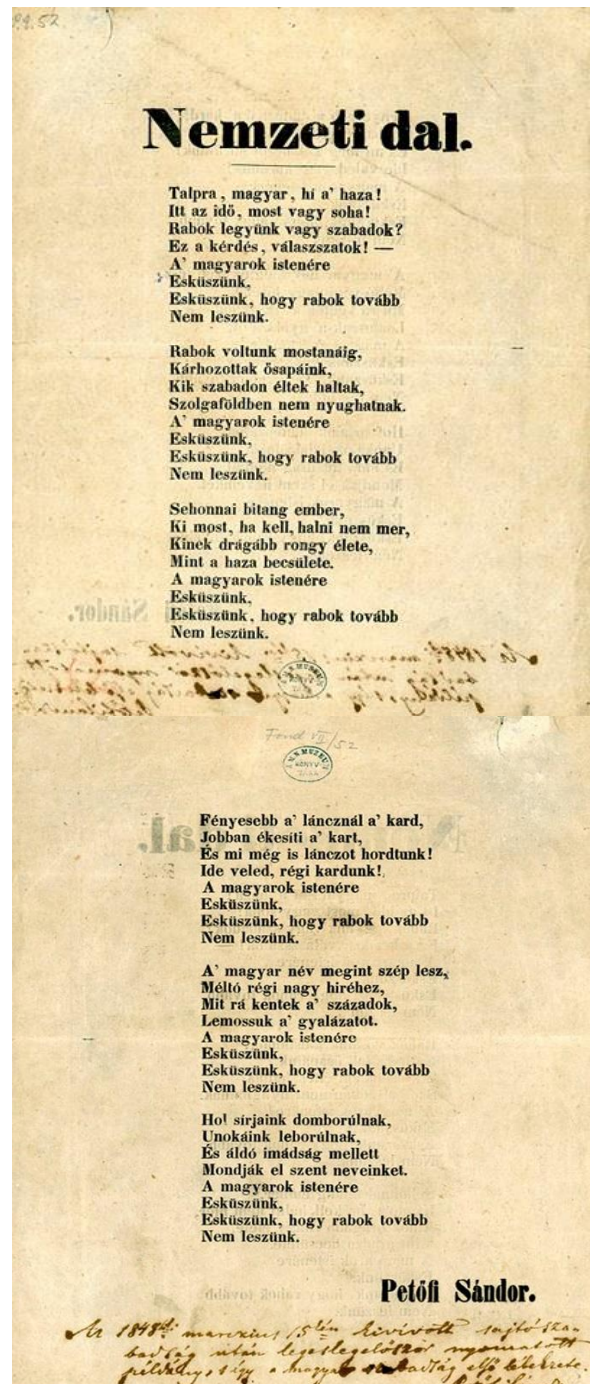 Nemzeti dal.
Talpra, magyar, hí a' haza!
Itt az idő, most vagy soha!
Rabok legyünk vagy szabadok?
Ez a kérdés, válaszszatok! —
A' magyarok istenére
Esküszünk,
Esküszünk, hogy rabok tovább
Nem leszünk.
Rabok voltunk mostanáig,
Kárhozottak ősapáink,
Kik szabadon éltek haltak,
Szolgaföldben nem nyughatnak.
A' magyarok istenére
Esküszünk,
Esküszünk, hogy rabok tovább
Nem leszünk.
Sehonnai bitang ember,
Ki most, ha kell, halni nem mer,
Kinek drágább rongy élete,
Mint a haza becsülete.
A magyarok istenére
Esküszünk,
Esküszünk, hogy rabok tovább
Nem leszünk.
Fond VII/52
Fényesebb a' láncznál a' kard,
Jobban ékesíti a' kart,
És mi még is lánczot hordtunk!
Ide veled, régi kardunk!
A magyarok istenére
Esküszünk,
Esküszünk, hogy rabok tovább
Nem leszünk.
A' magyar név megint szép lesz,
Méltó régi nagy hiréhez,
Mit rá kentek a' századok,
Lemossuk a' gyalázatot.
A magyarok istenére
Esküszünk,
Esküszünk, hogy rabok tovább
Nem leszünk.
Hol sírjaink domborúlnak,
Unokáink leborúlnak,
És áldó imádság mellett
Mondják el szent neveinket.
A magyarok istenére
Esküszünk,
Esküszünk, hogy rabok tovább
Nem leszünk.
Petőfi Sándor.
Az 1848diki marczius 15kén kivívott sajtósza-
badság után legeslegelőször nyomatott
példány, s így a magyar szabadság első lélekzete.